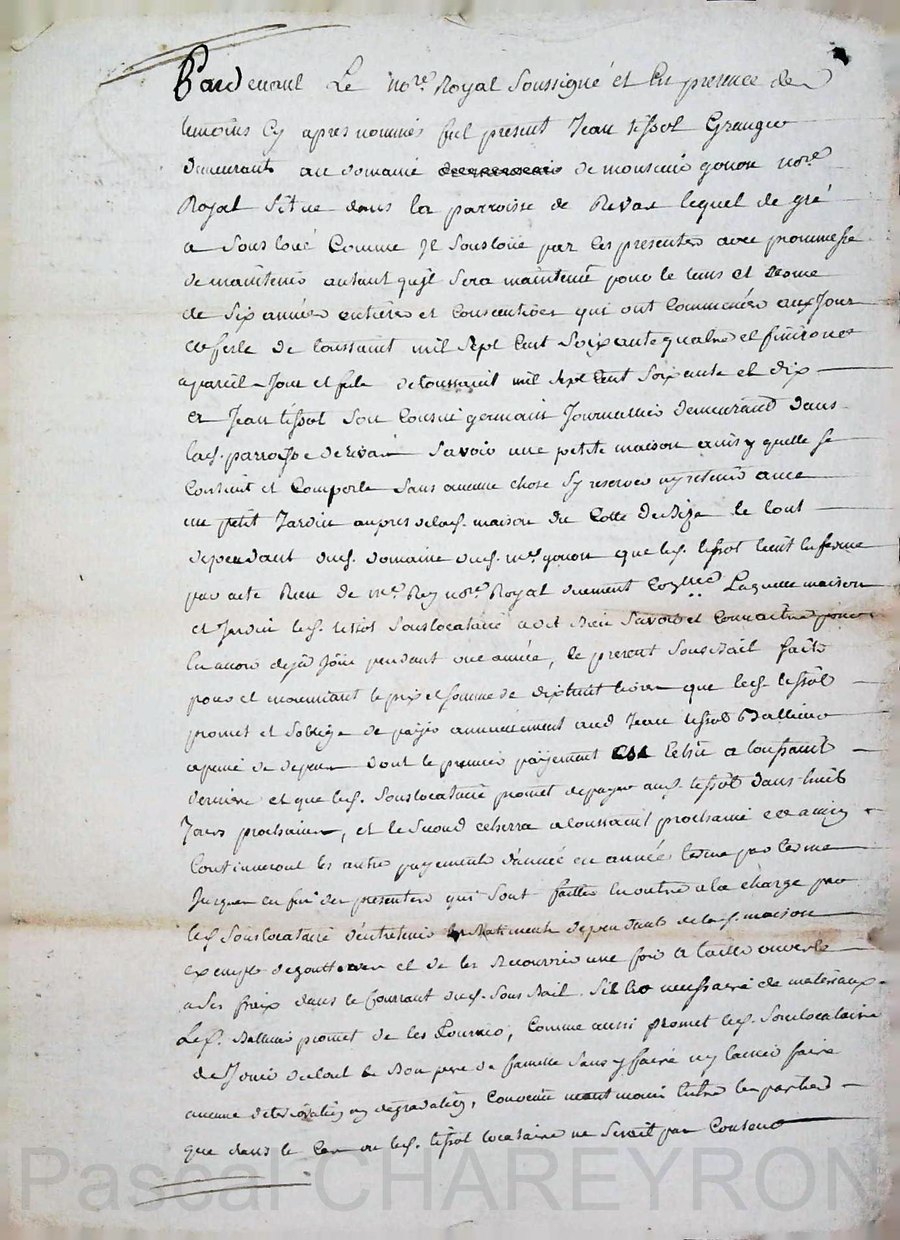 Pardevant Le no.re Royal Soussigné et En presence des
temoins Cy apres nommés fut present Jean tissot Granger
demeurant au domaine de monsieur gonon no.re
Royal Situé dans la parroisse de Revas lequel de gré
a Sous loué Comme Il Sousloue par les presentes avec prommesse
de maintenir autant quil Sera maintenu pour le tems et terme
de Six années entieres et Consecutives qui ont Commencées aux Jour
et feste de toussaint mil Sept Cent Soixante quatre et finiront
a pareil Jour et feste de toussaint mil Sept Cent Soixante et dix
a Jean tissot Son Cousin germain Journallier demeurant dans
lad. parroisse de Savoir une petite maison ainsy quelle Se
Contient et Comporte Sans aucune chose Sy reserver ny retenir avec
un petit Jardin aupres delad. maison du Cotté de Bize le tout
dependant dud. domaine dud. m.e gonon que led. tissot tient En ferme
par acte Recu de m.e Rey no.re Royal duement Laquelle maison
et Jardin led. tissot Souslocataire a dit Bien Savoir et Connaitre pour
En avoir deja Joui pendant une année, le present Sousbail fait
pour et moyennant le prix et Somme de dixhuit livres que led. tissot
promet et Soblige de payer annuellement aud. Jean tissot Bailleur
a peine de depens dont le premier payement est Echu a toussaint
derniere et que led. Souslocataire promet de payer aud. tissot dans huit
Jours prochains, et le Second echerra a toussaint prochaine et ainsy
Continueront les autres payements dannée en année terme par terme
Jusques en fin des presentes qui Sont faittes En outre a la charge par
led. Souslocataire dentretenir les Batiments dependants de lad. maison
exempt de gouttieres et de les Recouvrir une fois a taille ouverte
a Ses fraix dans le Courrant dud. Sous Bail. Sil est necessaire de materiaux
Led. Bailleur promet de les fournir, Comme aussi promet led. Souslocataire
de Jouir du tout en Bon pere de famille Sans y faire ny laisser faire
aucune deterioration ny degradation, Convenu neantmoins Entre les parties
que dans le Cas ou led. tissot locataire ne Seroit pas Content
Pascal CHAREYRON